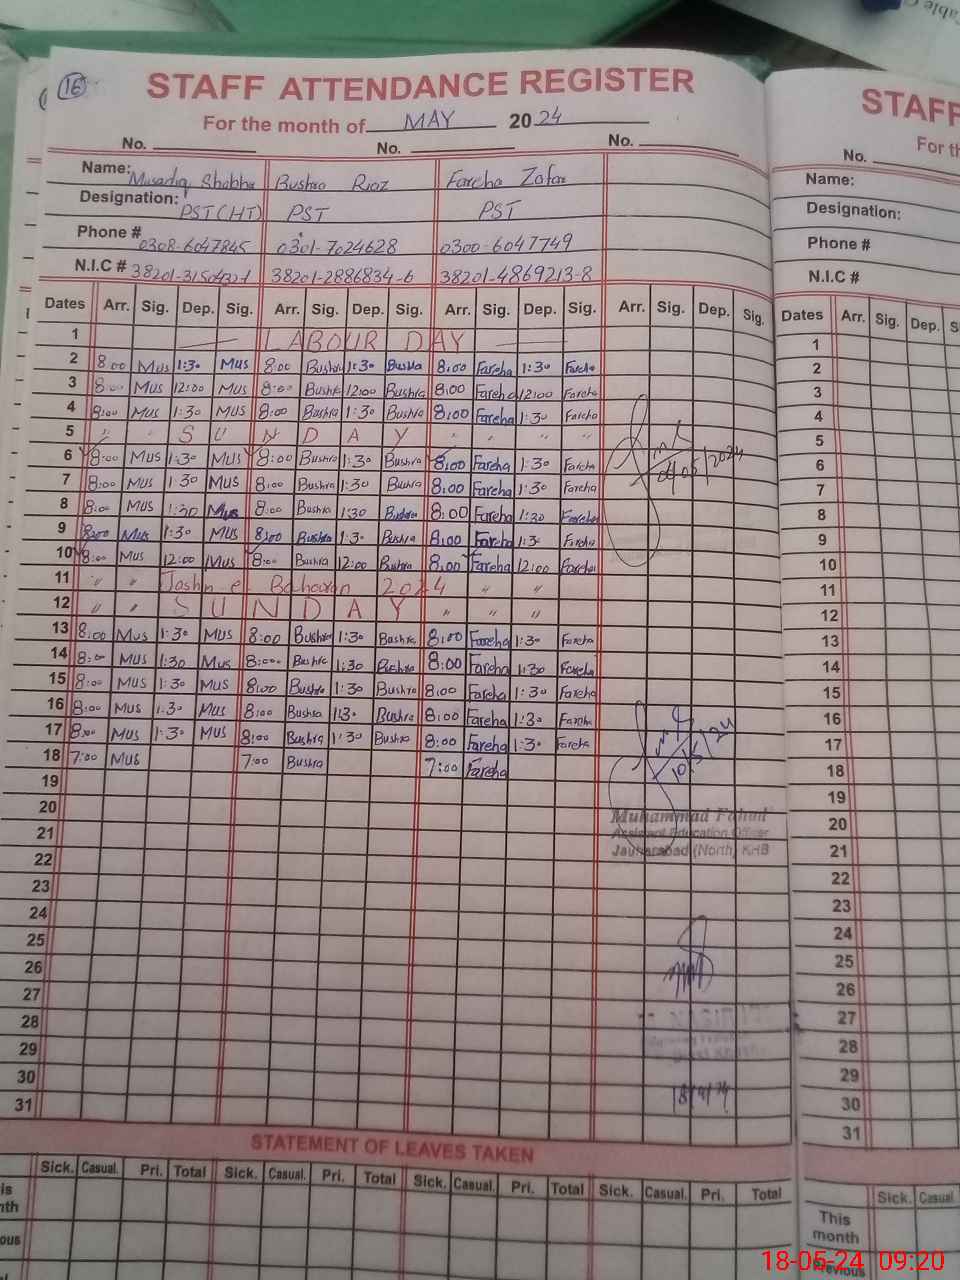 16
STAFF ATTENDANCE REGISTER
For the month of MAY 2024
No. No. No.
Name: Musadiq Shabbir Bushra Riaz Fareha Zafar
Designation: PST(HT) PST PST
Phone # 0308-6047845 0301-7024628 0300-6047749
N.I.C # 38201-2886834-6 38201-4869213-8
Dates Arr. Sig. Dep. Sig. Arr. Sig. Dep. Sig. Arr. Sig. Dep. Sig. Arr. Sig. Dep. Sig.
1 LABOUR DAY
2 8:00 Mus 1:30 Mus 8:00 Bushra 1:30 Bushra 8:00 Fareha 1:30 Fareha
3 8:00 Mus 12:00 Mus 8:00 Bushra 12:00 Bushra 8:00 Fareha 12:00 Fareha
4 8:00 Mus 1:30 Mus 8:00 Bushra 1:30 Bushra 8:00 Fareha 1:30 Fareha
5 " " S U N D A Y " " " "
6 8:00 Mus 1:30 Mus 8:00 Bushra 1:30 Bushra 8:00 Fareha 1:30 Fareha
7 8:00 Mus 1:30 Mus 8:00 Bushra 1:30 Bushra 8:00 Fareha 1:30 Fareha
8 8:00 Mus 1:30 Mus 8:00 Bushra 1:30 Bushra 8:00 Fareha 1:30 Fareha
9 8:00 Mus 1:30 Mus 8:00 Bushra 1:30 Bushra 8:00 Fareha 1:30 Fareha
10 8:00 Mus 12:00 Mus 8:00 Bushra 12:00 Bushra 8:00 Fareha 12:00 Fareha
11 " " Jashn e Baharan 2024 " "
12 " " S U N D A Y " " "
13 8:00 Mus 1:30 Mus 8:00 Bushra 1:30 Bushra 8:00 Fareha 1:30 Fareha
14 8:00 Mus 1:30 Mus 8:00 Bushra 1:30 Bushra 8:00 Fareha 1:30 Fareha
15 8:00 Mus 1:30 Mus 8:00 Bushra 1:30 Bushra 8:00 Fareha 1:30 Fareha
16 8:00 Mus 1:30 Mus 8:00 Bushra 1:30 Bushra 8:00 Fareha 1:30 Fareha
17 8:00 Mus 1:30 Mus 8:00 Bushra 1:30 Bushra 8:00 Fareha 1:30 Fareha
18 7:00 Mus 7:00 Bushra 7:00 Fareha
19
20
21
22
23
24
25
26
27
28
29
30
31
10/5/24
Muhammad Fahad
Assistant Education Officer
Jauharabad (North) KHB
STATEMENT OF LEAVES TAKEN
Sick. Casual. Pri. Total Sick. Casual. Pri. Total Sick. Casual. Pri. Total Sick. Casual. Pri. Total
STAFF
No.
Name:
Designation:
Phone #
N.I.C #
Dates Arr. Sig. Dep.
1
2
3
4
5
6
7
8
9
10
11
12
13
14
15
16
17
18
19
20
21
22
23
24
25
26
27
28
29
30
31
Sick. Casual
This
month
Previous
18-05-24 09:20